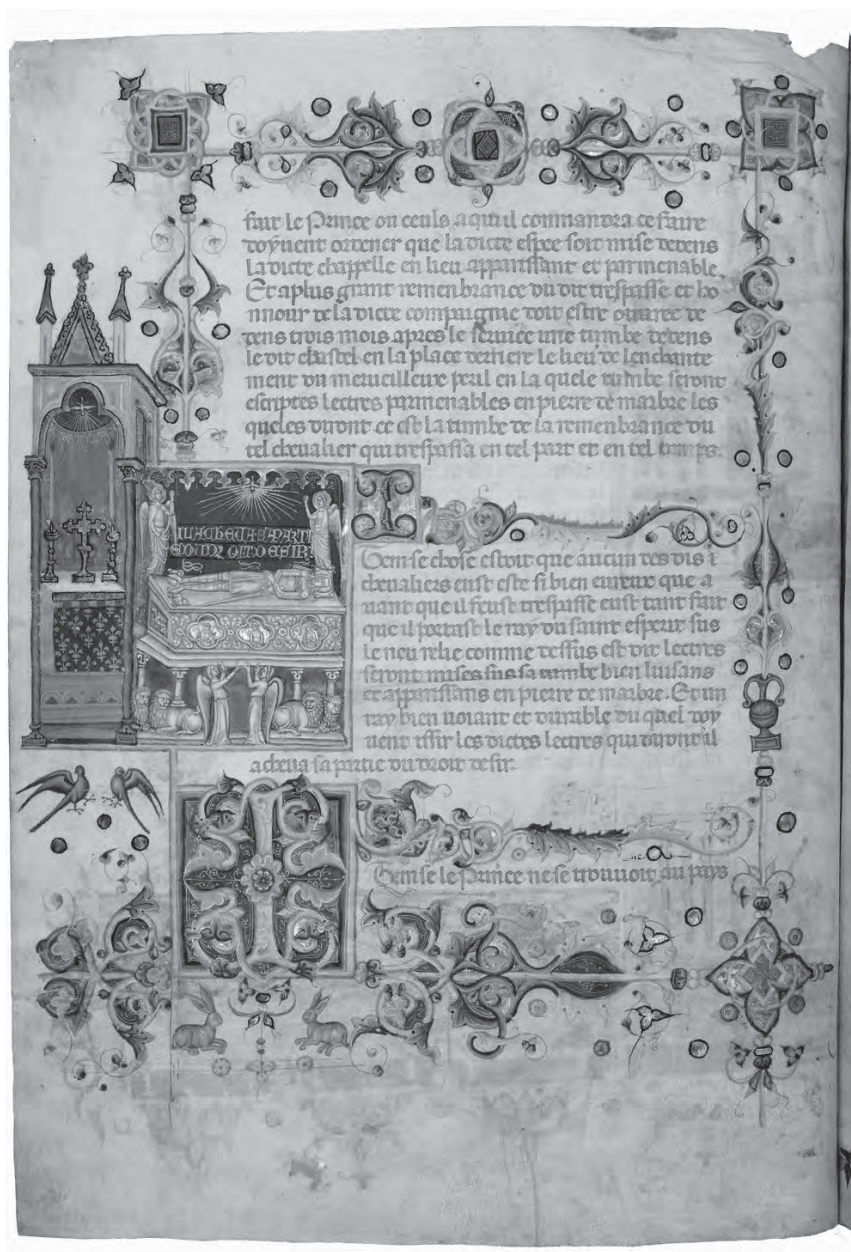 fait le Prince ou ceuls a qui il commandra ce faire
doyuent ordener que la dicte espee soit mise dedens
la dicte chappelle en lieu apparissant et parmenable.
Et a plus grant remenbrance du dit trespasse et ho
nnour de la dicte compaignie doit estre ouuree de
dens trois mois apres le seruice une tumbe dedens
le dit chastel en la place derriere le lieu de lenchante
ment du merueilleux peril en la quele tumbe seront
escriptes lettres parmenables en pierre de marbre les
queles diront ce est la tumbe de la remenbrance du
tel cheualier qui trespassa en tel part et en tel temps.
IL ACHEVA SA PARTI
DU DROIT DESIR
I
Tem se chose estoit que aucun des dis
cheualiers eust este si bien eureux que a
uant que il feust trespasse eust tant fait
que il portast le ray du saint esperit sus
le neu relie comme dessus est dit lettres
seront mises sus sa tumbe bien luisans
et apparissans en pierre de marbre. Et un
ray bien uoiant et durable du quel doy
uent issir les dictes lettres qui diront il
acheua sa partie du droit desir.
I
Tem se le Prince ne se trouuoit au pays